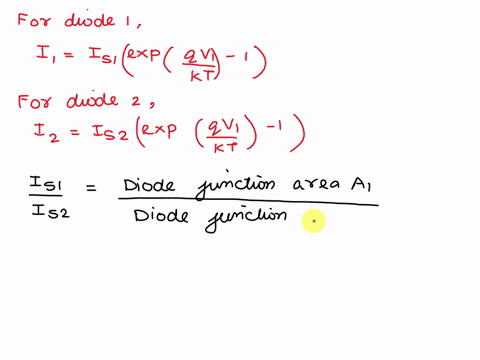 For diode 1,
I₁ = I_S1 (exp(qV₁/KT) - 1)
For diode 2,
I₂ = I_S2 (exp (qV₁/KT) - 1)
I_S1/I_S2 = Diode junction area A₁ / Diode junction